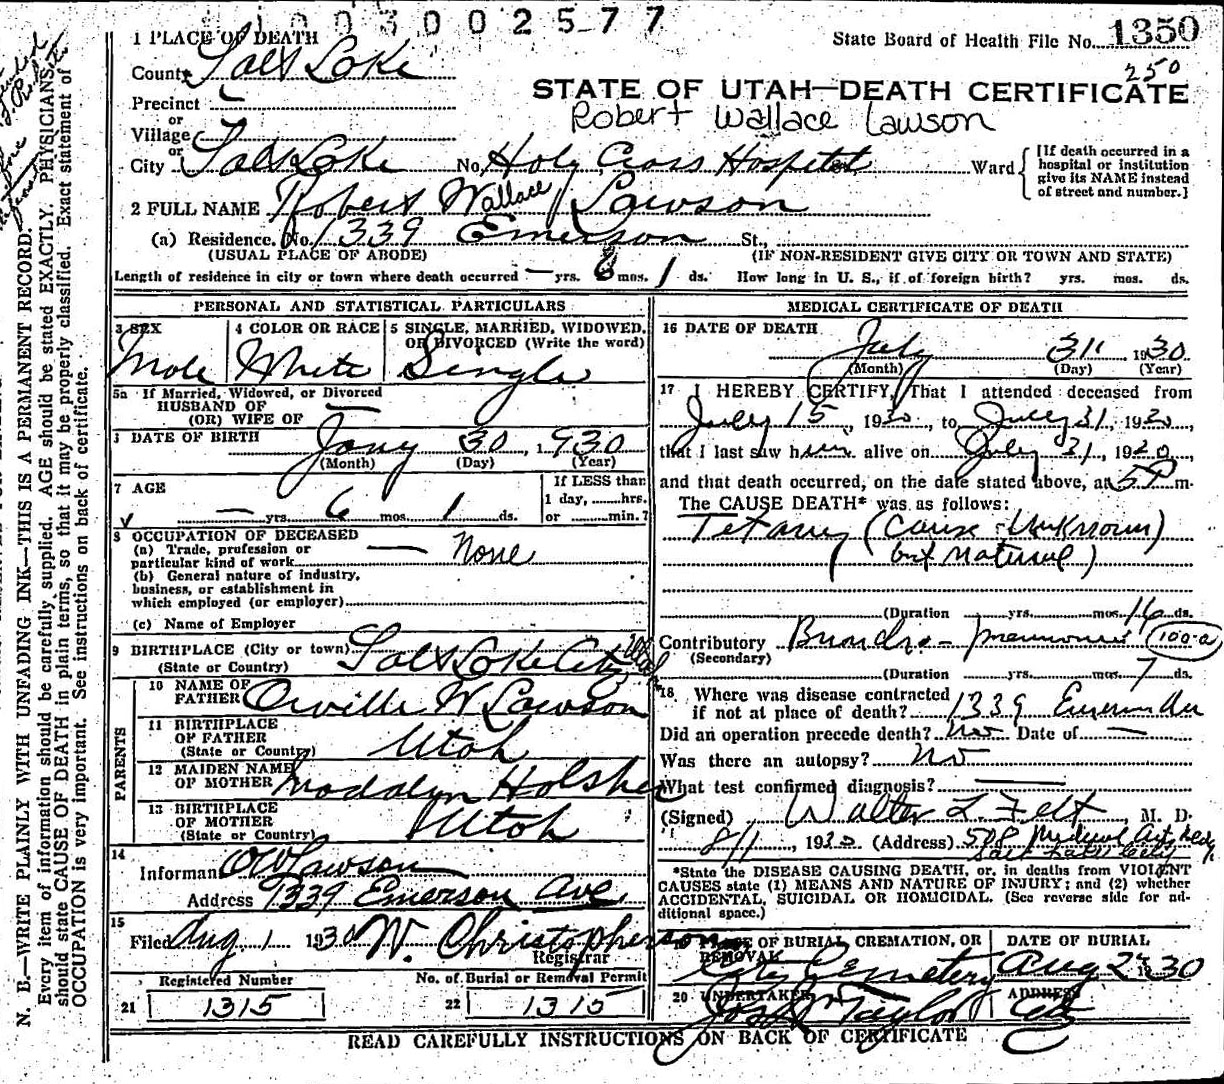 1003002577
1 PLACE OF DEATH
State Board of Health File No. 1350
County Salt Lake
250
STATE OF UTAH—DEATH CERTIFICATE
Precinct
or
Robert Wallace Lawson
Village
or
City Salt Lake No. Holy Cross Hospital Ward
[If death occurred in a
hospital or institution
give its NAME instead
of street and number.]
2 FULL NAME Robert Wallace Lawson
(a) Residence. No. 1339 Emerson St.,
(USUAL PLACE OF ABODE) (IF NON-RESIDENT GIVE CITY OR TOWN AND STATE)
Length of residence in city or town where death occurred — yrs. 6 mos. 1 ds. How long in U. S., if of foreign birth? yrs. mos. ds.
PERSONAL AND STATISTICAL PARTICULARS
3 SEX
Male
4 COLOR OR RACE
White
5 SINGLE, MARRIED, WIDOWED,
OR DIVORCED (Write the word)
Single
5a If Married, Widowed, or Divorced
HUSBAND OF —
(OR) WIFE OF
DATE OF BIRTH Jany 30, 1930
(Month) (Day) (Year)
7 AGE
— yrs. 6 mos. 1 ds.
If LESS than
1 day, ......hrs.
or ......min.?
8 OCCUPATION OF DECEASED
(a) Trade, profession or
particular kind of work — None
(b) General nature of industry,
business, or establishment in
which employed (or employer)
(c) Name of Employer
9 BIRTHPLACE (City or town)
(State or Country) Salt Lake City, Utah
PARENTS
10 NAME OF
FATHER Orville W Lawson
11 BIRTHPLACE
OF FATHER
(State or Country) Utah
12 MAIDEN NAME
OF MOTHER Madalyn
13 BIRTHPLACE
OF MOTHER
(State or Country) Utah
14
Informant O W Lawson
Address 1339 Emerson Ave.
15
Filed Aug. 1 1930 W. Christopherson
Registrar
Registered Number
21 1315
No. of Burial or Removal Permit
22 1315
MEDICAL CERTIFICATE OF DEATH
16 DATE OF DEATH
July 31 1930
(Month) (Day) (Year)
17 I HEREBY CERTIFY, That I attended deceased from
July 15, 1930, to July 31, 1930,
that I last saw him alive on July 31, 1930,
and that death occurred, on the date stated above, at 5 P m.
The CAUSE DEATH* was as follows:
Tetany (Cause - Unknown)
but Natural)
(Duration yrs. mos. 16 ds.
Contributory Broncho-pneumonia 100-a
(Secondary)
(Duration yrs. mos. 7 ds.
18 Where was disease contracted
if not at place of death? 1339 Emerson Ave
Did an operation precede death? No Date of —
Was there an autopsy? No
What test confirmed diagnosis? —
(Signed) Walter L. Felt, M. D.
8/1, 1930 (Address) 508 Medical Arts Bldg.
Salt Lake City
*State the DISEASE CAUSING DEATH, or, in deaths from VIOLENT
CAUSES state (1) MEANS AND NATURE OF INJURY; and (2) whether
ACCIDENTAL, SUICIDAL OR HOMICIDAL. (See reverse side for ad-
ditional space.)
PLACE OF BURIAL, CREMATION, OR
REMOVAL
City Cemetery
DATE OF BURIAL
Aug 2 1930
20 UNDERTAKER
Jos. Wm Taylor
ADDRESS
City
READ CAREFULLY INSTRUCTIONS ON BACK OF CERTIFICATE
N. B.—WRITE PLAINLY WITH UNFADING INK—THIS IS A PERMANENT RECORD.
Every item of information should be carefully supplied. AGE should be stated EXACTLY. PHYSICIANS
should state CAUSE OF DEATH in plain terms, so that it may be properly classified. Exact statement of
OCCUPATION is very important. See instructions on back of certificate.